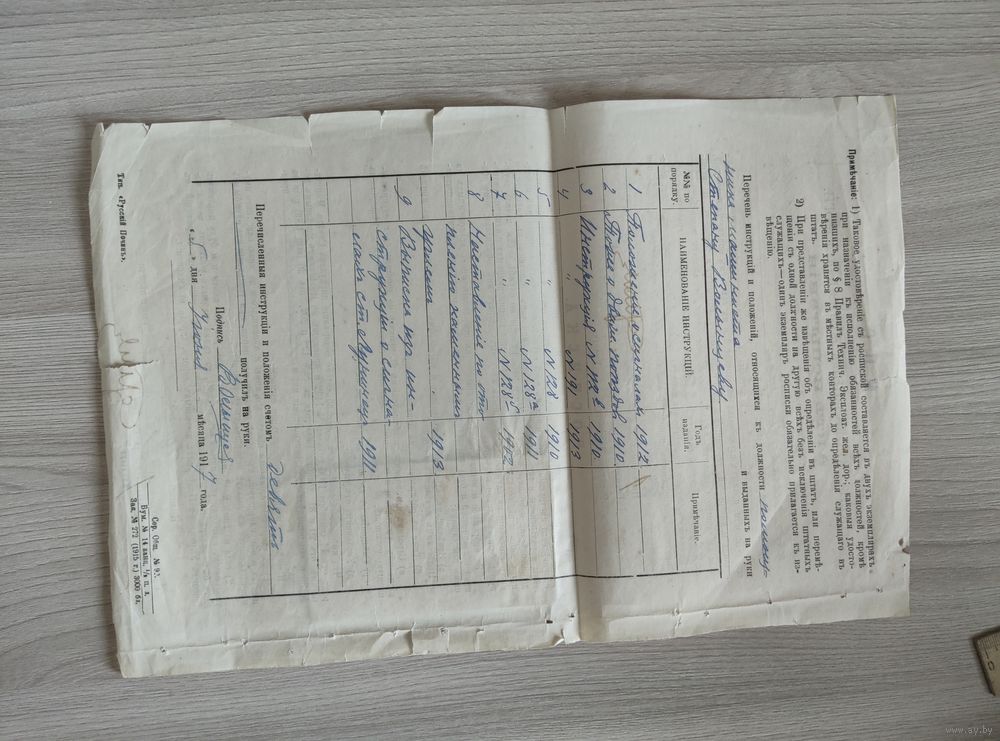 Примѣчаніе: 1) Таковое удостовѣреніе съ роспиской составляется въ двухъ экземплярахъ
при назначеніи къ исполненію обязанностей всѣхъ должностей, кромѣ
низшихъ, по § 8 Правилъ Технич. Эксплоат. жел. дор.; каковыя удосто-
вѣренія хранятся въ мѣстныхъ конторахъ до опредѣленія служащаго въ
штатъ.
2) При представленіи же извѣщенія объ опредѣленіи въ штатъ, или перемѣ-
щеніи съ одной должности на другую всѣхъ безъ исключенія штатныхъ
служащихъ—одинъ экземпляръ росписки обязательно прилагается къ из-
вѣщенію.
Перечень инструкцій и положеній, относящихся къ должности помощ-
ника машиниста и выданныхъ на руки
Степану
№№ по порядку. НАИМЕНОВАНІЕ ИНСТРУКЦІЙ. Годъ изданія. Примѣчаніе.
1 сигналам 1912
2 о движ. поѣздов 1910
3 Инструкція N 112 1910
4 " N 191 1913
5 " N 128 1910
6 " N 128а 1911
7 " N 128б 1912
8 Наставленіе по ото-
1913
9 Выписка из ин-
струкціи о сигна-
лахъ ст. 1911
Перечисленныя инструкціи и положенія счетомъ девять
получилъ на руки.
Подпись
„5" дня Іюня мѣсяца 1917 года.
Сер. Общ. № 93.
Бум. № 14 канц. ½ п. л.
Зак. № 272 (1915 г.) 3000 бл.
Тип. «Русскій Починъ».
www.ay.by